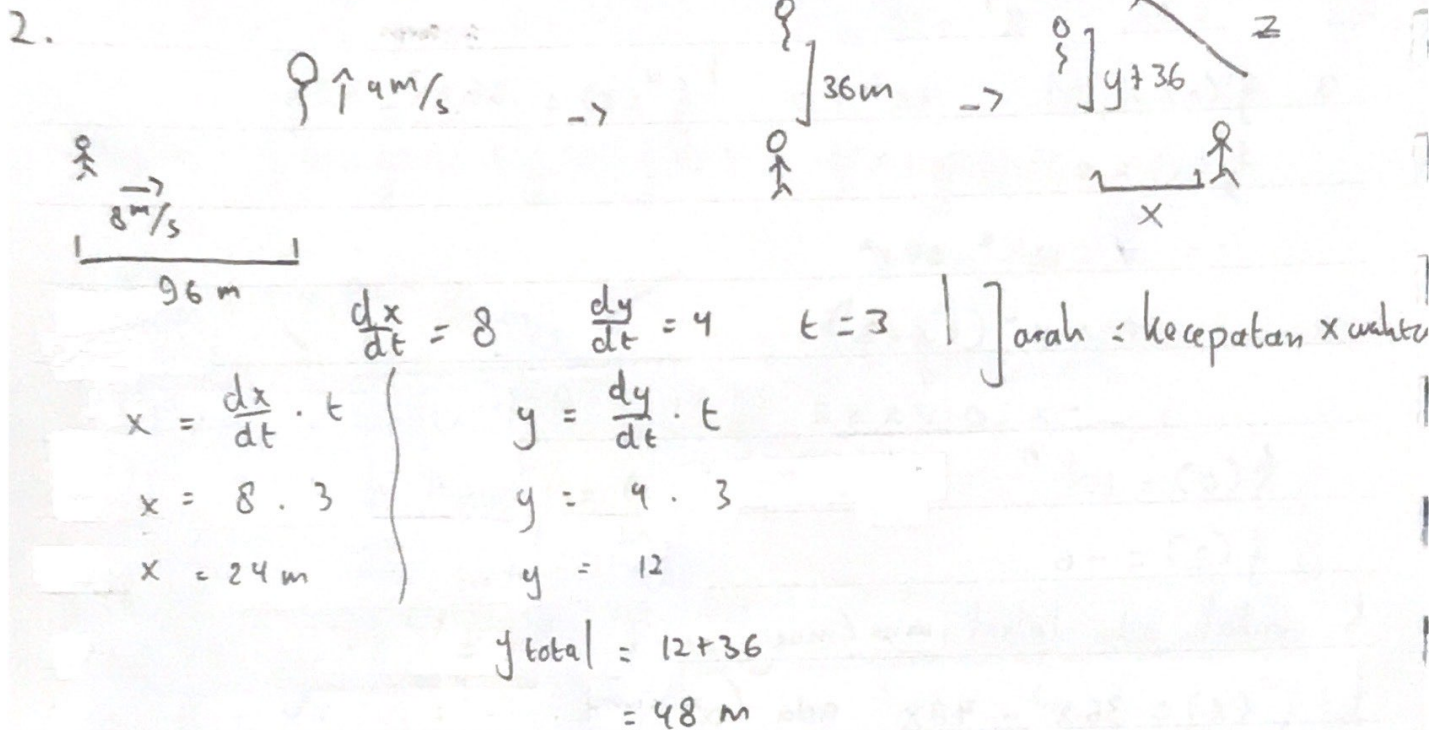 2.
↑ 4 m/s → ] 36 m → ] y + 36 z
→
8 m/s
x
96 m
dx/dt = 8 dy/dt = 4 t = 3 | Jarak = kecepatan x waktu
x = dx/dt . t y = dy/dt . t
x = 8 . 3 y = 4 . 3
x = 24 m y = 12
y total = 12 + 36
= 48 m